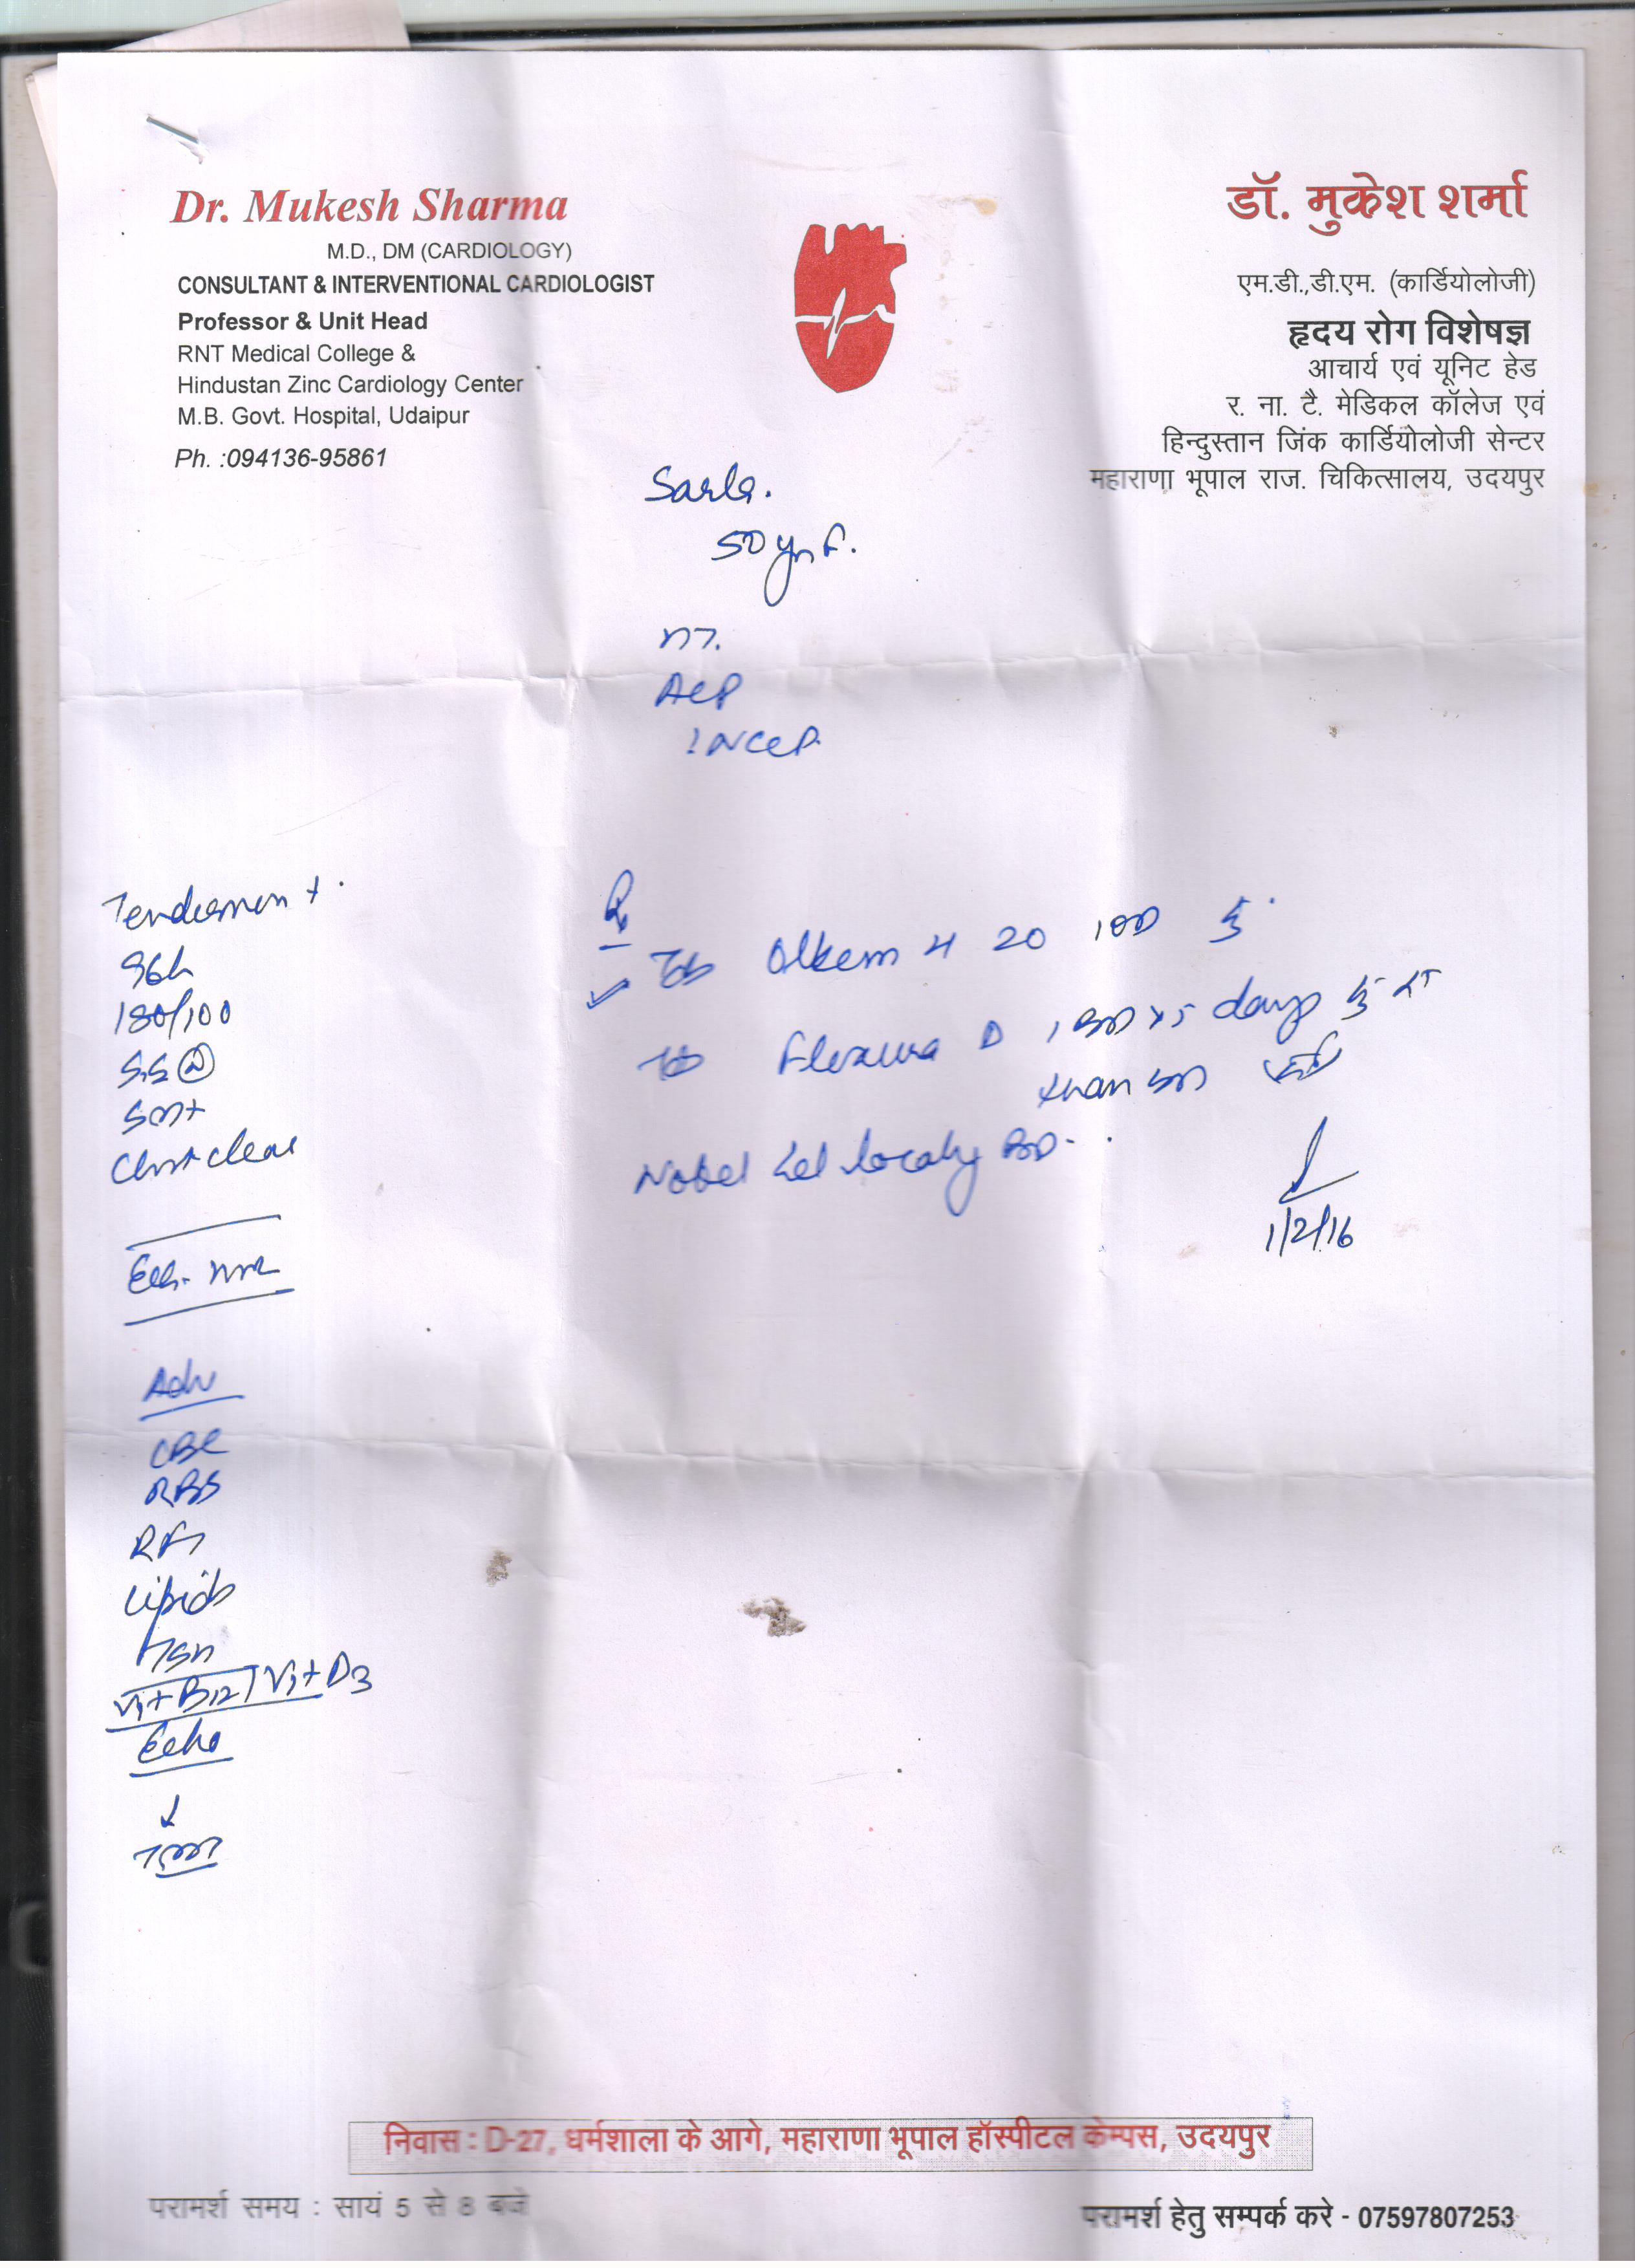 Dr. Mukesh Sharma
M.D., DM (CARDIOLOGY)
CONSULTANT & INTERVENTIONAL CARDIOLOGIST
Professor & Unit Head
RNT Medical College &
Hindustan Zinc Cardiology Center
M.B. Govt. Hospital, Udaipur
Ph. :094136-95861
डॉ. मुकेश शर्मा
एम.डी.,डी.एम. (कार्डियोलोजी)
हृदय रोग विशेषज्ञ
आचार्य एवं यूनिट हेड
र. ना. टै. मेडिकल कॉलेज एवं
हिन्दुस्तान जिंक कार्डियोलोजी सेन्टर
महाराणा भूपाल राज. चिकित्सालय, उदयपुर
Sarla.
50 yr F.
ACP
Tenderness +
96/
180/100
S1S2
Chest clear
Adv
CBC
RBS
RFT
Lipids
TSH
Vit B12 / Vit D3
Echo
Rx
Tab Olkem H 20 1 OD
Tab Flexura D 1 BD x 5 days
than
Nobel gel locally BD.
1/2/16
निवास : D-27, धर्मशाला के आगे, महाराणा भूपाल हॉस्पीटल केम्पस, उदयपुर
परामर्श समय : सायं 5 से 8 बजे
परामर्श हेतु सम्पर्क करे - 07597807253